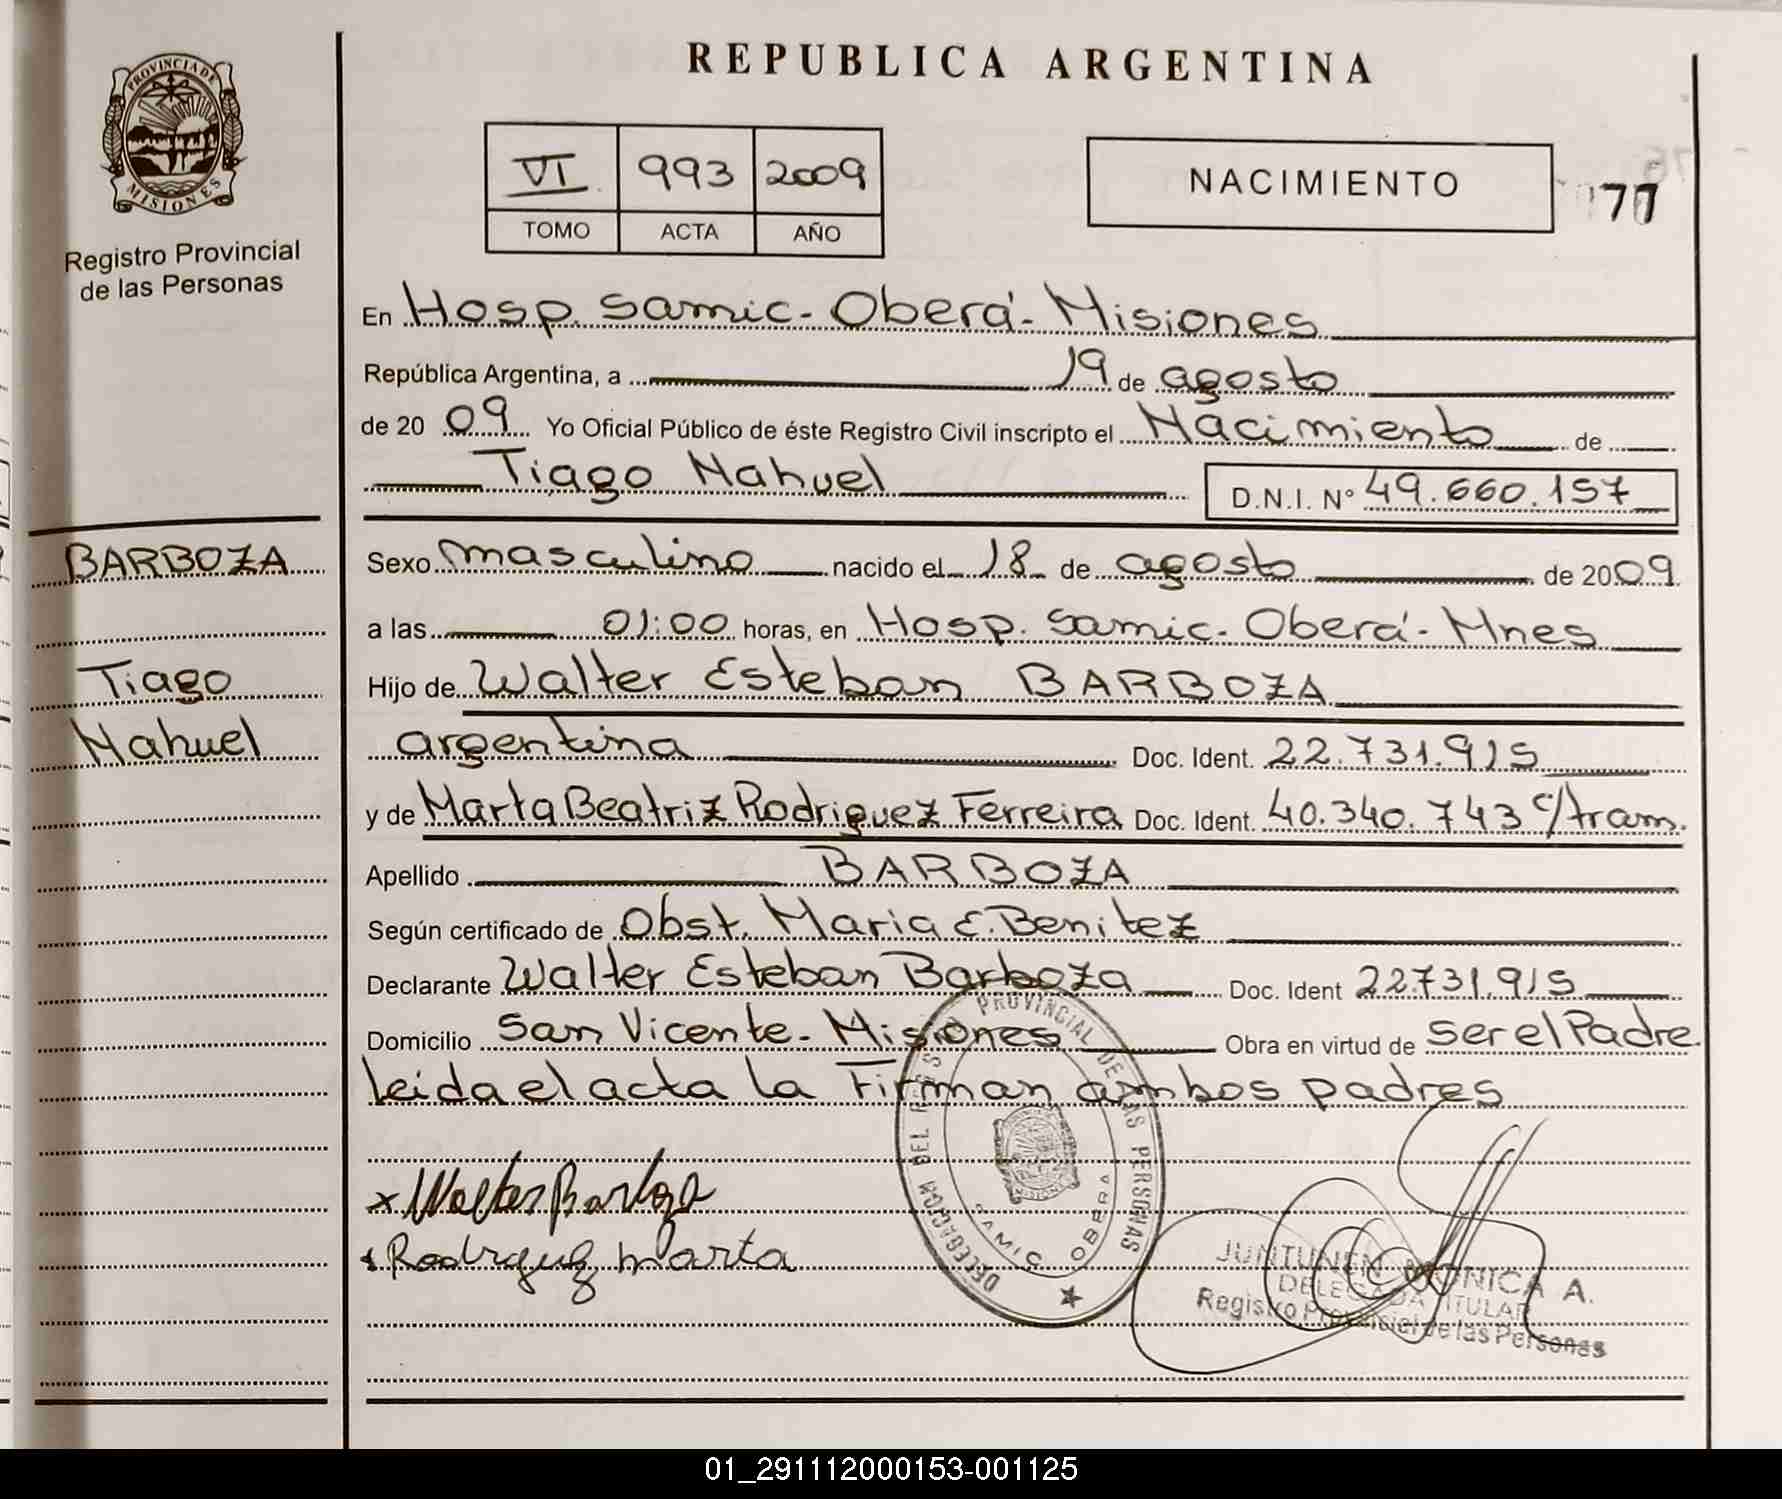 REPUBLICA ARGENTINA
PROVINCIA DE
MISIONES
Registro Provincial
de las Personas
VI 993 2009
TOMO ACTA AÑO
NACIMIENTO
77
En Hosp. Samic - Oberá - Misiones
República Argentina, a 19 de agosto
de 2009 Yo Oficial Público de éste Registro Civil inscripto el Nacimiento de
Tiago Nahuel D.N.I. Nº 49.660.157
BARBOZA
Tiago
Nahuel
Sexo masculino nacido el 18 de agosto de 2009
a las 01:00 horas, en Hosp. Samic - Oberá - Mnes
Hijo de Walter Esteban BARBOZA
argentina Doc. Ident. 22.731.915
y de Marta Beatriz Rodriguez Ferreira Doc. Ident. 40.340.743 c/tram.
Apellido BARBOZA
Según certificado de Obst. Maria E. Benitez
Declarante Walter Esteban Barboza Doc. Ident 22.731.915
Domicilio San Vicente - Misiones Obra en virtud de ser el Padre
leida el acta la Firman ambos padres
x Walter Barboza
Rodriguez Marta
DELEGACION DEL REGISTRO PROVINCIAL DE LAS PERSONAS
SAMIC OBERA
JUNTUNEN MONICA A.
DELEGADA TITULAR
Registro Provincial de las Personas
01_291112000153-001125